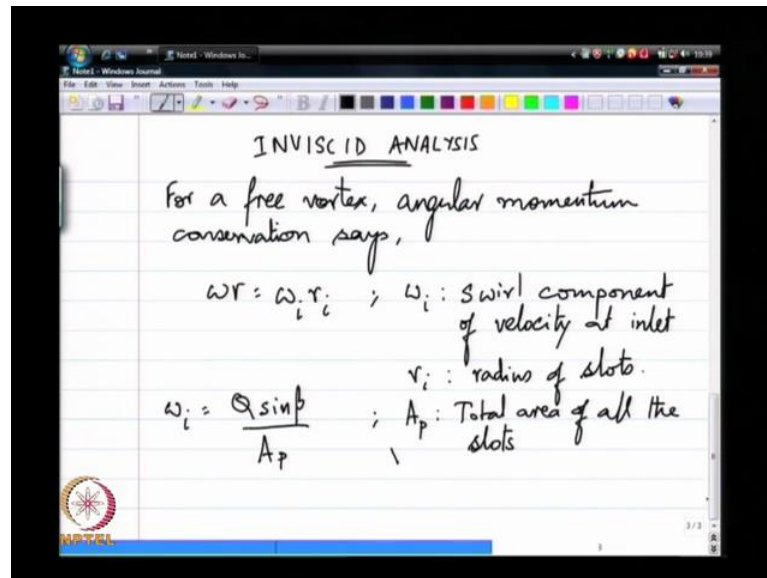 Note1 - Windows Jo...
10:39
Note1 - Windows Journal
File Edit View Insert Actions Tools Help
INVISCID ANALYSIS
For a free vortex, angular momentum
conservation says,
ωr = ω_i r_i ; ω_i : swirl component
of velocity at inlet
r_i : radius of slots.
ω_i = Q sinβ / A_p ; A_p : Total area of all the
slots
3/3
3
NPTEL